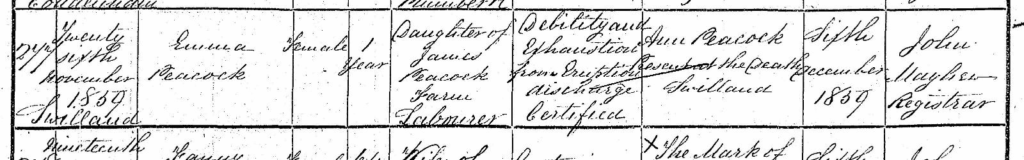 Twenty sixth november 1859 Swilland
Emma Peacock
Female
1 Year
Daughter of James Peacock Farm Labourer
Debility and Exhaustion from Eruption discharge Certified
Ann Peacock Present at the Death Swilland
Sixth December 1859
John Mayhew Registrar
nineteenth
Fanny
Wife of
X The Mark of
Sixth